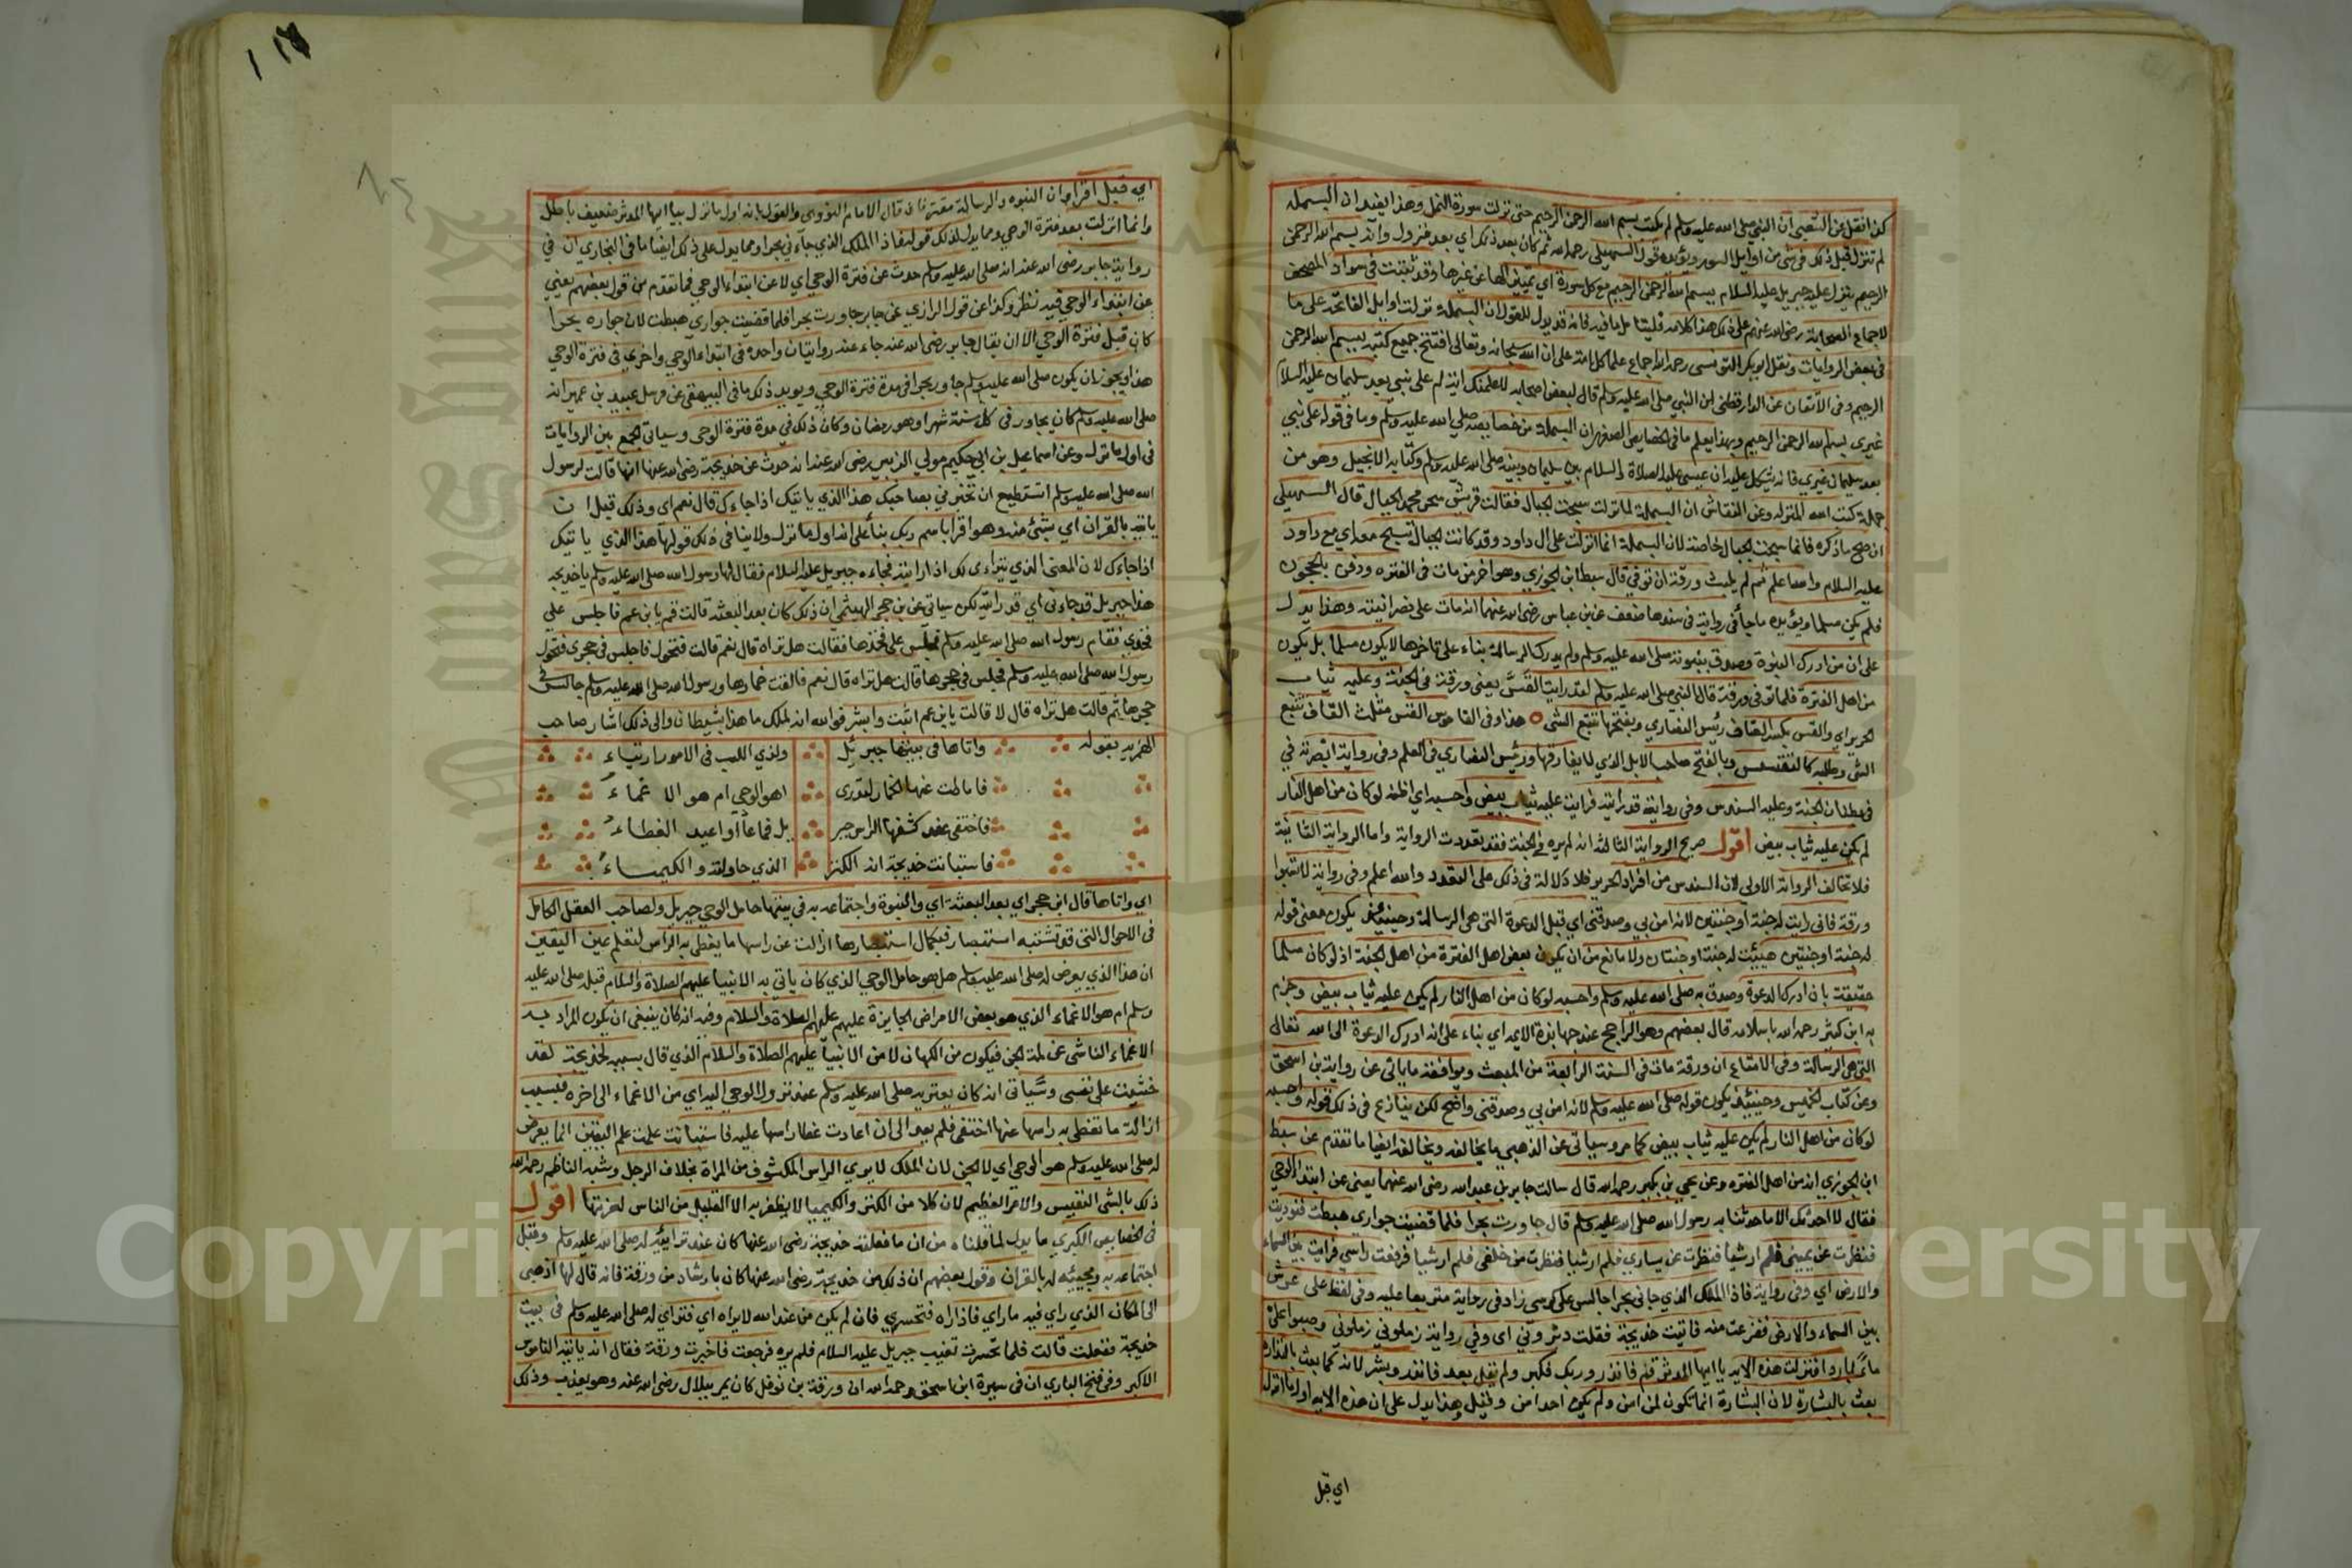 لكن نقل عن الشعبي ان النبي صلى الله عليه وسلم لم يكتب بسم الله الرحمن الرحيم حتى نزلت سورة النمل وهذا يفيد ان البسملة
لم تنزل قبل ذلك في شئ من اوايل السور ويؤيده قول السهيلي رحمه الله ثم كان بعد ذلك اي بعد نزول وانه بسم الله الرحمن
الرحيم ينزل عليه جبريل عليه السلام ببسم الله الرحمن الرحيم مع كل سورة اي تمييزا لها عن غيرها وقد ثبتت في سواد المصحف
لاجماع الصحابة رضي الله عنهم على ذلك هذا كلامه فليتامل ما فيه فانه قد يدل للقول ان البسملة نزلت اوايل الفاتحة على ما
في بعض الروايات ونقل ابو بكر التونسي رحمه الله اجماع علما كل امة على ان الله سبحانه وتعالى افتتح جميع كتبه ببسم الله الرحمن
الرحيم وفي الاتقان عن الدارقطني ان النبي صلى الله عليه وسلم قال لبعض اصحابه لاعلمنك اية لم تنزل على نبي بعد سليمان عليه السلام
غيري بسم الله الرحمن الرحيم وبهذا يعلم ما في الخصايص الصغرى ان البسملة من خصايصه صلى الله عليه وسلم وما في قوله على نبي
بعد سليمان غيري فانه يشكل عليه ان عيسى عليه الصلاة والسلام بين سليمان وبينه صلى الله عليه وسلم وكتابه الانجيل وهو من
جملة كتب الله المنزله وعن النقاش ان البسملة لما نزلت سبحت الجبال فقالت قريش سحر محمد الجبال قال السهيلي
ان صح ما ذكره فانما سبحت الجبال خاصة لان البسملة انما انزلت على ال داود وقد كانت الجبال تسبح معه اي مع داود
عليه السلام والله اعلم ثم لم يلبث ورقة ان توفي قال سبط ابن الجوزي وهو اخر من مات في الفتره ودفن بالحجون
فلم يكن مسلما ويؤيده ما جاء في رواية في سندها ضعف عن بن عباس رضي الله عنهما انه مات على نصرانيته وهذا يدل
على ان من ادرك النبوة وصدق بنبوته صلى الله عليه وسلم ولم يدرك الرسالة بناء على تاخرها لا يكون مسلما بل يكون
من اهل الفترة فلما توفي ورقة قال النبي صلى الله عليه وسلم لقد رايت القس يعني ورقة في الجنة وعليه ثياب
الحرير اي والقس بكسر القاف رئيس النصاري وبفتحها تتبع الشي هذا وفي القاموس القس مثلث القاف تتبع
الشي وطلبه كالتقسس وبالفتح صاحب الابل الذي لا يفارقها ورئيس النصاري في العلم وفي رواية ابصرته في
بطنان الجنة وعليه السندس وفي رواية قد رايته فرايت عليه ثياب بيض واحسبه اي اظنه لو كان من اهل النار
لم يكن عليه ثياب بيض اقول صريح الرواية الثالثة انه لم يره في الجنة فقد تعددت الرواية واما الرواية الثانية
فلا تخالف الرواية الاولى لان السندس من افراد الحرير فلا دلالة في ذلك على التعدد والله اعلم وفي رواية لا تسبوا
ورقة فاني رايت له جنة او جنتين لانه امن بي وصدقني اي قبل الدعوة التي هي الرسالة وحينئذ يكون معنى قوله
له جنة او جنتين هيئت له جنة او جنتان ولا مانع من ان يكون بعض اهل الفترة من اهل الجنة اذ لو كان مسلما
حقيقة بان ادرك الدعوة وصدق به صلى الله عليه وسلم واحسبه لو كان من اهل النار لم يكن عليه ثياب بيض وجزم
به ابن كثير رحمه الله باسلامه قال بعضهم وهو الراجح عند جهابذة الايمه اي بناء على انه ادرك الدعوة الى الله تعالى
التي هي الرسالة وفي الامتاع ان ورقة مات في السنة الرابعة من المبعث ويوافقه ما ياتي عن رواية بن اسحق
وعن كتاب الخميس وحينئذ يكون قوله صلى الله عليه وسلم لانه امن بي وصدقني واضح لكن ينازع في ذلك قوله واحسبه
لو كان من اهل النار لم يكن عليه ثياب بيض كما مر وسياتي عن الذهبي ما يخالفه ويخالفه ايضا ما تقدم عن سبط
ابن الجوزي انه من اهل الفتره وعن يحيى بن بكير رحمه الله قال سالت جابر بن عبد الله رضي الله عنهما يعني عن ابتداء الوحي
فقال لا احدثك الا ما حدثنا به رسول الله صلى الله عليه وسلم قال جاورت بحرا فلما قضيت جواري هبطت فنوديت
فنظرت عن يميني فلم ار شيا فنظرت عن يساري فلم ار شيا فنظرت من خلفي فلم ار شيا فرفعت راسي فرايت بين السماء
والارض اي وفي رواية فاذا الملك الذي جاني بحرا جالس على كرسي زاد في رواية متربعا عليه وفي لفظ على عرش
بين السماء والارض ففزعت منه فاتيت خديجة فقلت دثروني اي وفي رواية زملوني زملوني وصبوا علي
ماء باردا فنزلت هذه الايه يا ايها المدثر قم فانذر وربك فكبر ولم يقل بعد فانذر وبشر لانه كما بعث بالنذاره
بعث بالبشارة لان البشارة انما تكون لمن امن ولم يكن احد امن وقيل وهذا يدل على ان هذه الايه اول ما انزل
اي قبل
اي قبل اقرا وان النبوه والرسالة مقترنان قال الامام النووي والقول بانه اول ما نزل يا ايها المدثر ضعيف باطل
وانما انزلت بعد فترة الوحي ومما يدل لذلك قوله فاذا الملك الذي جاءني بحرا ومما يدل على ذلك ايضا ما في البخاري ان في
رواية جابر رضي الله عنه انه صلى الله عليه وسلم حدث عن فترة الوحي اي لا عن ابتداء الوحي فما تقدم من قول بعضهم يعني
عن ابتداء الوحي فيه نظر وكذا عن قول الرازي عن جابر جاورت بحرا فلما قضيت جواري هبطت لان جواره بحرا
كان قبل فترة الوحي الا ان يقال جابر رضي الله عنه جاء عنه روايتان واحده في ابتداء الوحي واخرى في فترة الوحي
هذا ويجوز ان يكون صلى الله عليه وسلم جاور بحرا في مدة فترة الوحي ويويد ذلك ما في البيهقي عن مرسل عبيد بن عمير انه
صلى الله عليه وسلم كان يجاور في كل سنة شهرا وهو رمضان وكان ذلك في مدة فترة الوحي وسياتي الجمع بين الروايات
في اول ما نزل وعن اسماعيل بن ابي حكيم مولي الزبير رضي الله عنه انه حدث عن خديجة رضي الله عنها انها قالت لرسول
الله صلى الله عليه وسلم اتستطيع ان تخبرني بصاحبك هذا الذي ياتيك اذا جاءك قال نعم اي وذلك قبل ان
ياتيه بالقران اي بشئ منه وهو اقرا باسم ربك بناء على انه اول ما نزل ولا ينافي ذلك قولها هذا الذي ياتيك
اذا جاءك لان المعنى الذي يتراءى لك اذا رايته فجاءه جبريل عليه السلام فقال لها رسول الله صلى الله عليه وسلم يا خديجه
هذا جبريل قد جاءني اي قد رايته لكن سياتي عن بن حجر الهيثمي ان ذلك كان بعد البعثه قالت قم يا بن عم فاجلس على
فخذي فقام رسول الله صلى الله عليه وسلم فجلس على فخذها فقالت هل تراه قال نعم قالت فتحول فاجلس في حجري فتحول
رسول الله صلى الله عليه وسلم فجلس في حجرها قالت هل تراه قال نعم فالقت خمارها ورسول الله صلى الله عليه وسلم جالس في
حجرها ثم قالت هل تراه قال لا قالت يا بن عم اثبت وابشر فوالله انه لملك ما هذا بشيطان والى ذلك اشار صاحب
الهمزيه بقوله واتاها في بيتها جبرئيل ولذي اللب في الامور ارتياء
فاماطت عنها الخمار لتدري اهو الوحي ام هو الاغماء
فاختفى عند كشفها الراس جبر يل فما عاد او اعيد الغطاء
فاستبانت خديجة انه الكنز الذي حاولته والكيمياء
اي واتاها قال ابن حجر اي بعد البعثة اي والنبوة واجتماعه به في بيتها حامل الوحي جبريل ولصاحب العقل الكامل
في الاحوال التي قد تشتبه استبصار فبكمال استبصارها ازالت عن راسها ما يغطي به الراس لتعلم عين اليقين
ان هذا الذي يعرض له صلى الله عليه وسلم هل هو حامل الوحي الذي كان ياتي به الانبيا عليهم الصلاة والسلام قبله صلى الله عليه
وسلم ام هو الاغماء الذي هو بعض الامراض الجايزة عليهم عليهم الصلاة والسلام وفيه انه كان ينبغي ان يكون المراد به
الاغماء الناشي عن لمة الجن فيكون من الكهان لا من الانبيا عليهم الصلاة والسلام الذي قال بسببه لخديجة لقد
خشيت على نفسي وسياتي انه كان يعتريه صلى الله عليه وسلم عند نزول الوحي اليه اي من الاغماء الى اخره فبسبب
ازالة ما تغطي به راسها عنها اختفى فلم يعد الى ان اعادت غطا راسها عليه فاستبانت علمت علم اليقين انما يعرض
له صلى الله عليه وسلم هو الوحي اي لا الجن لان الملك لا يري الراس المكشوف من المراة بخلاف الرجل وشبه الناظم رحمه الله
ذلك بالشي النفيس والامر العظيم لان كلا من الكنز والكيميا لا يظفر به الا القليل من الناس لعزتها اقول
في الخصايص الكبري ما يدل لما قلناه من ان ما فعلته خديجة رضي الله عنها كان عند ترائيه له صلى الله عليه وسلم وقبل
اجتماعه به ومجيئه له بالقران وقول بعضهم ان ذلك من خديجة رضي الله عنها كان بارشاد من ورقة فانه قال لها اذهبي
الى المكان الذي راي فيه ما راي فاذا راه فتحسري فان لم يكن من عند الله لا يراه اي فتراي له صلى الله عليه وسلم في بيت
خديجة ففعلت قالت فلما تحسرت تغيب جبريل عليه السلام فلم يره فرجعت فاخبرت ورقة فقال انه ياتيه الناموس
الاكبر وفي فتح الباري ان في سيرة ابن اسحق رحمه الله ان ورقة بن نوفل كان يمر ببلال رضي الله عنه وهو يعذب وذلك
King Saud University
1957
Copyright © King Saud University